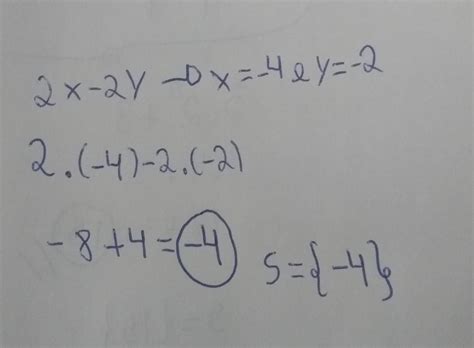 2x-2y → x=-4 e y=-2
2.(-4)-2.(-2)
-8+4=-4
S={-4}